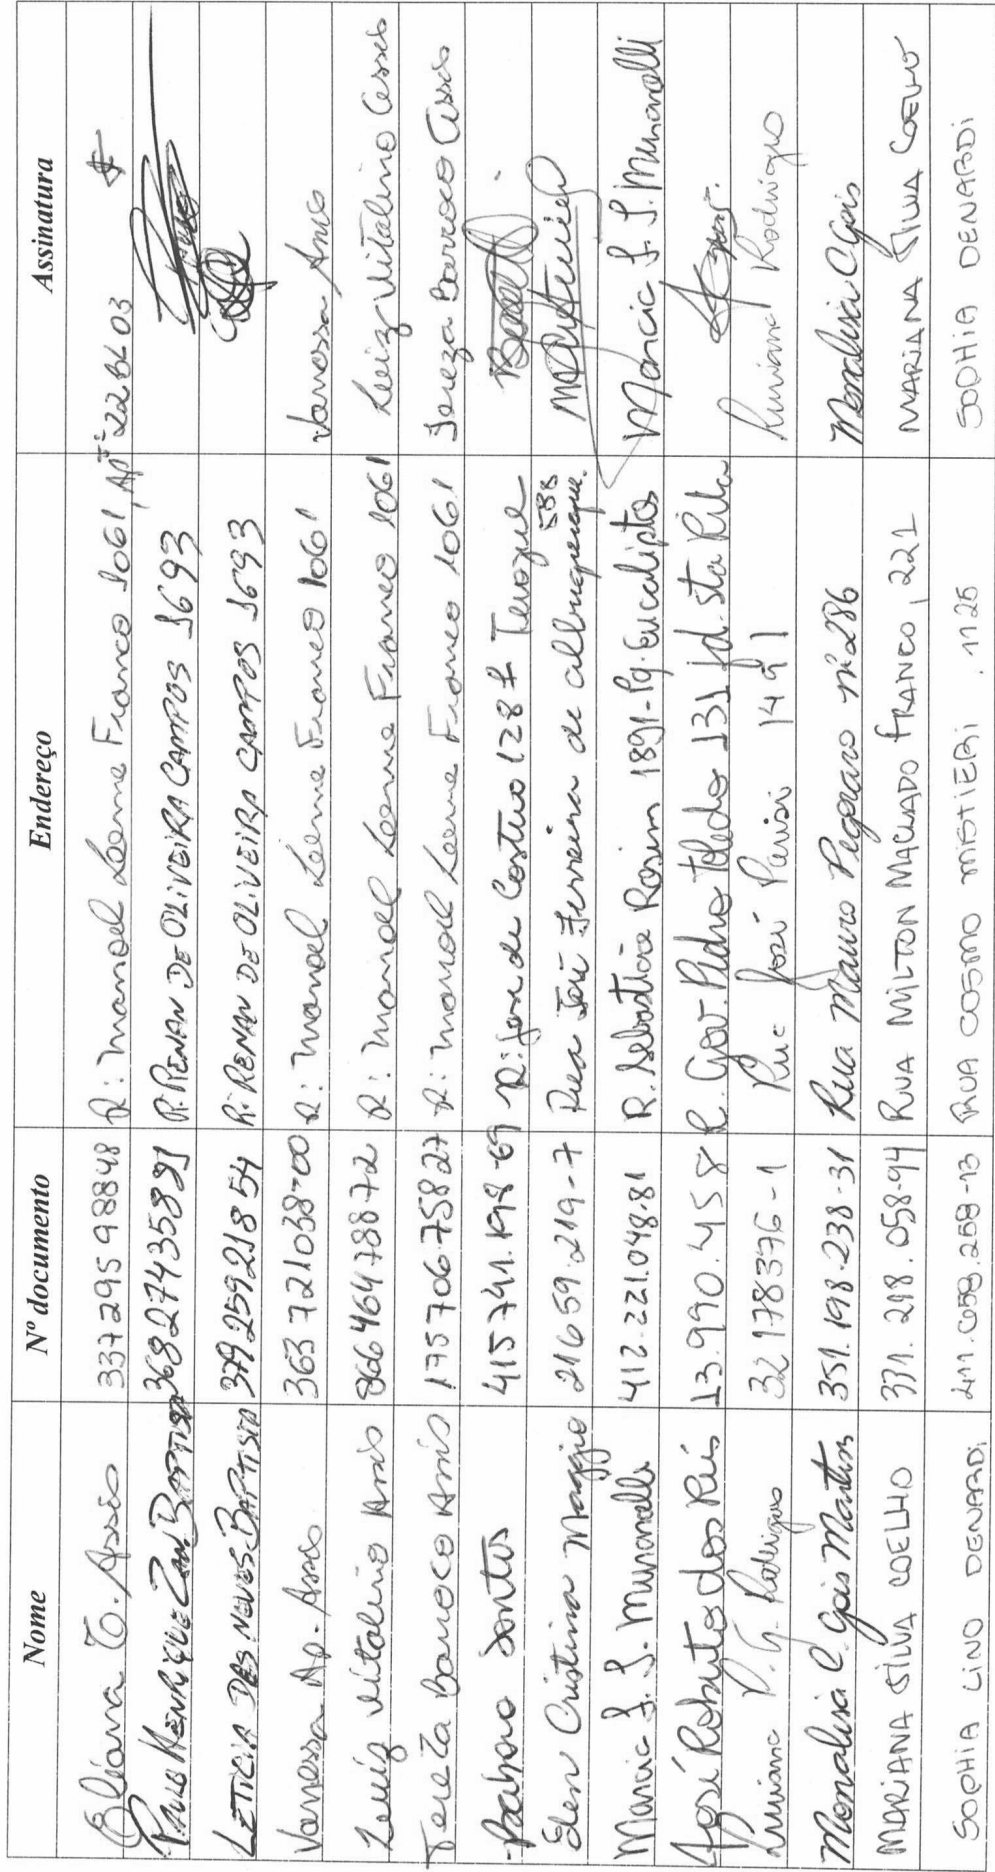 Nome Nº documento Endereço Assinatura
Eliana T. Assis 33729598848 R: Manoel Leme Franco 1061, Apt: 22BL03
Paulo Henrique Zan Baptista 36827435891 R: RENAN DE OLIVEIRA CAMPOS 1693
LETICIA DAS NEVES BAPTISTA 37925921854 R: RENAN DE OLIVEIRA CAMPOS 1693
Vanessa Ap. Assis 363721038-00 R: Manoel Leme Franco 1061 Vanessa Assis
Luiz Vitalino Assis 86646478872 R: Manoel Leme Franco 1061 Luiz Vitalino Assis
Tereza Barroco Assis 17570675827 R: Manoel Leme Franco 1061 Tereza Barroco Assis
Santos 415741.198-69 R: José de Castro 128
Elen Cristina Maggio 21659.219-7 Rua José Ferreira de Albuquerque. 588
Marcia S. S. Munarolli 412.221.048-81 R. Sebastião Rosim 1891-Pq. Eucaliptos Marcia S. S. Munarolli
José Roberto dos Reis 13.990.458 R. Gov. Pedro Toledo 131 Jd. Sta Rita
Luciana P. G. Rodrigues 32178376-1 Rua José Parisi 1491 Luciana Rodrigues
Monalisa C. Gois Martins 351.198.238-31 Rua Mauro Pegoraro nº 286 Monalisa C Gois
MARIANA SILVA COELHO 331.218.058-94 RUA MILTON MACHADO FRANCO, 221 MARIANA SILVA COELHO
SOPHIA LINO DENARDI 411.058.258-13 RUA COSMO MISTIERI, 1125 SOPHIA DENARDI